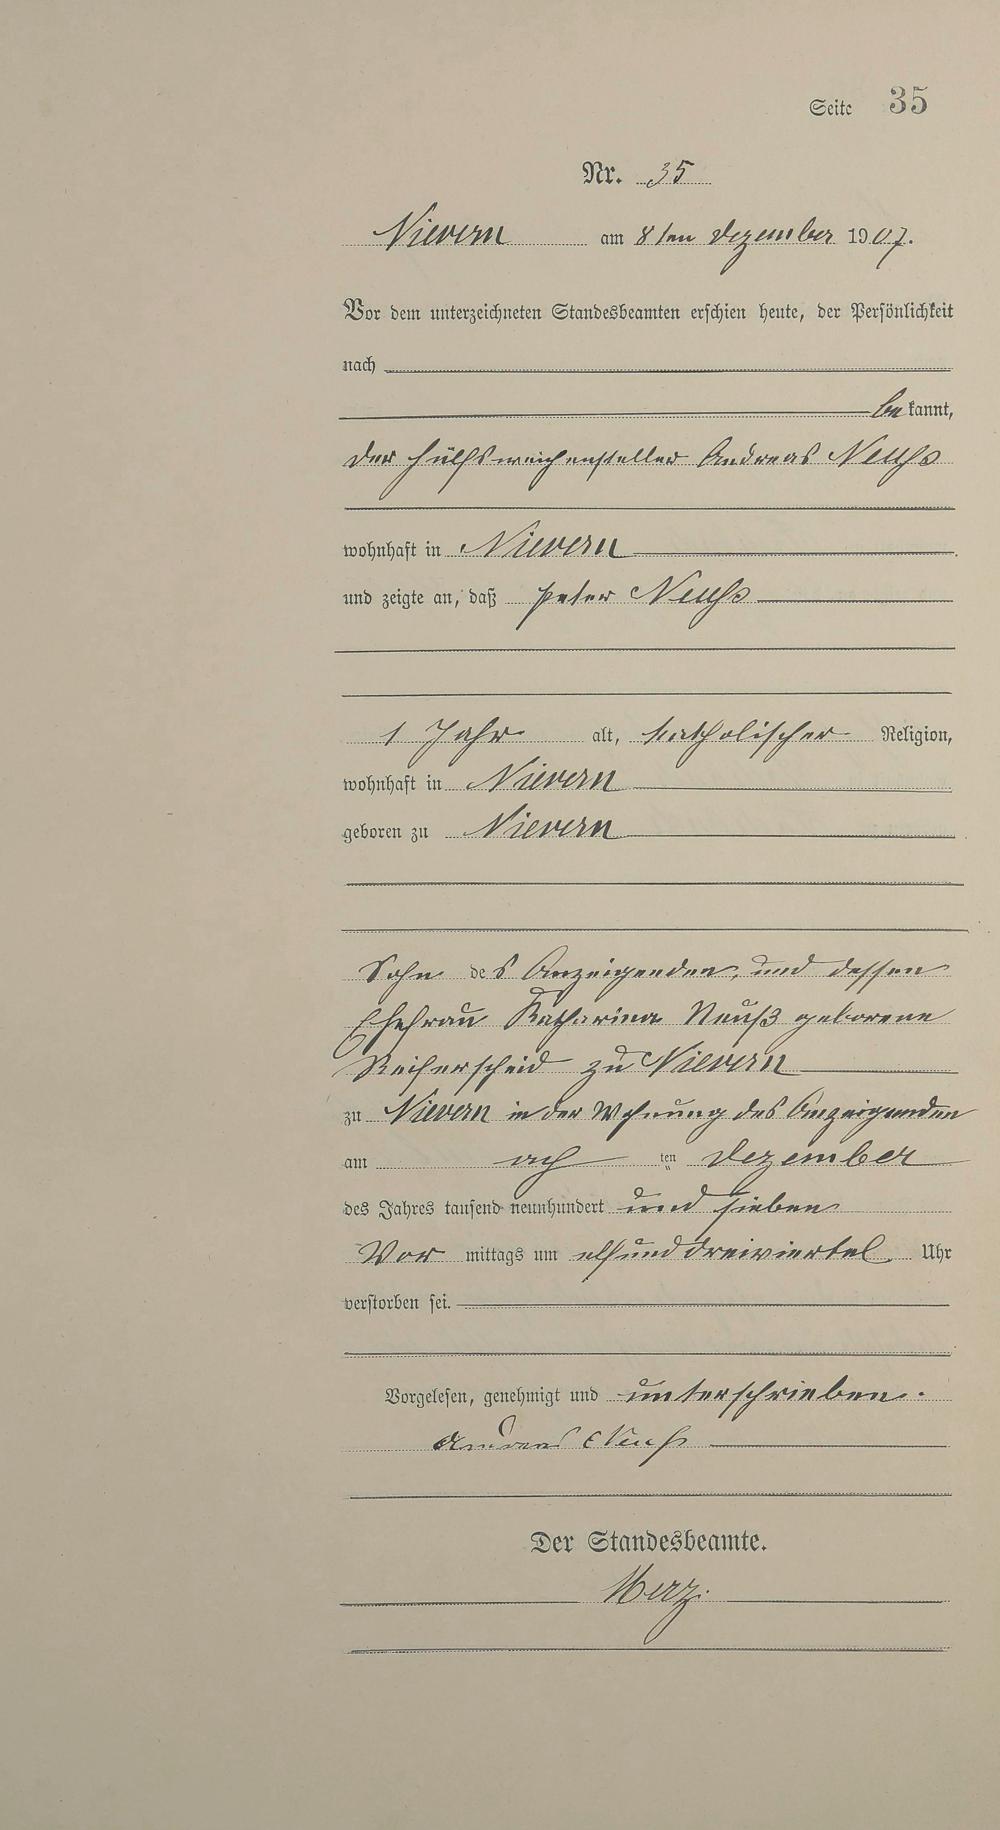 Seite 35
Nr. 35
Nievern am 8ten Dezember 1907.
Vor dem unterzeichneten Standesbeamten erschien heute, der Persönlichkeit
nach
bekannt,
der Hülfsweichensteller Andreas Neuß
wohnhaft in Nievern
und zeigte an, daß Peter Neuß
1 Jahr alt, katholischer Religion,
wohnhaft in Nievern
geboren zu Nievern
Sohn des Anzeigenden, und dessen
Ehefrau Katharina Neuß geborene
Reiferscheid zu Nievern
zu Nievern in der Wohnung des Anzeigenden
am ach ten Dezember
des Jahres tausend neunhundert und sieben
Vor mittags um elfunddreiviertel Uhr
verstorben sei.
Vorgelesen, genehmigt und unterschrieben.
Andreas Neuß
Der Standesbeamte.
Merz.